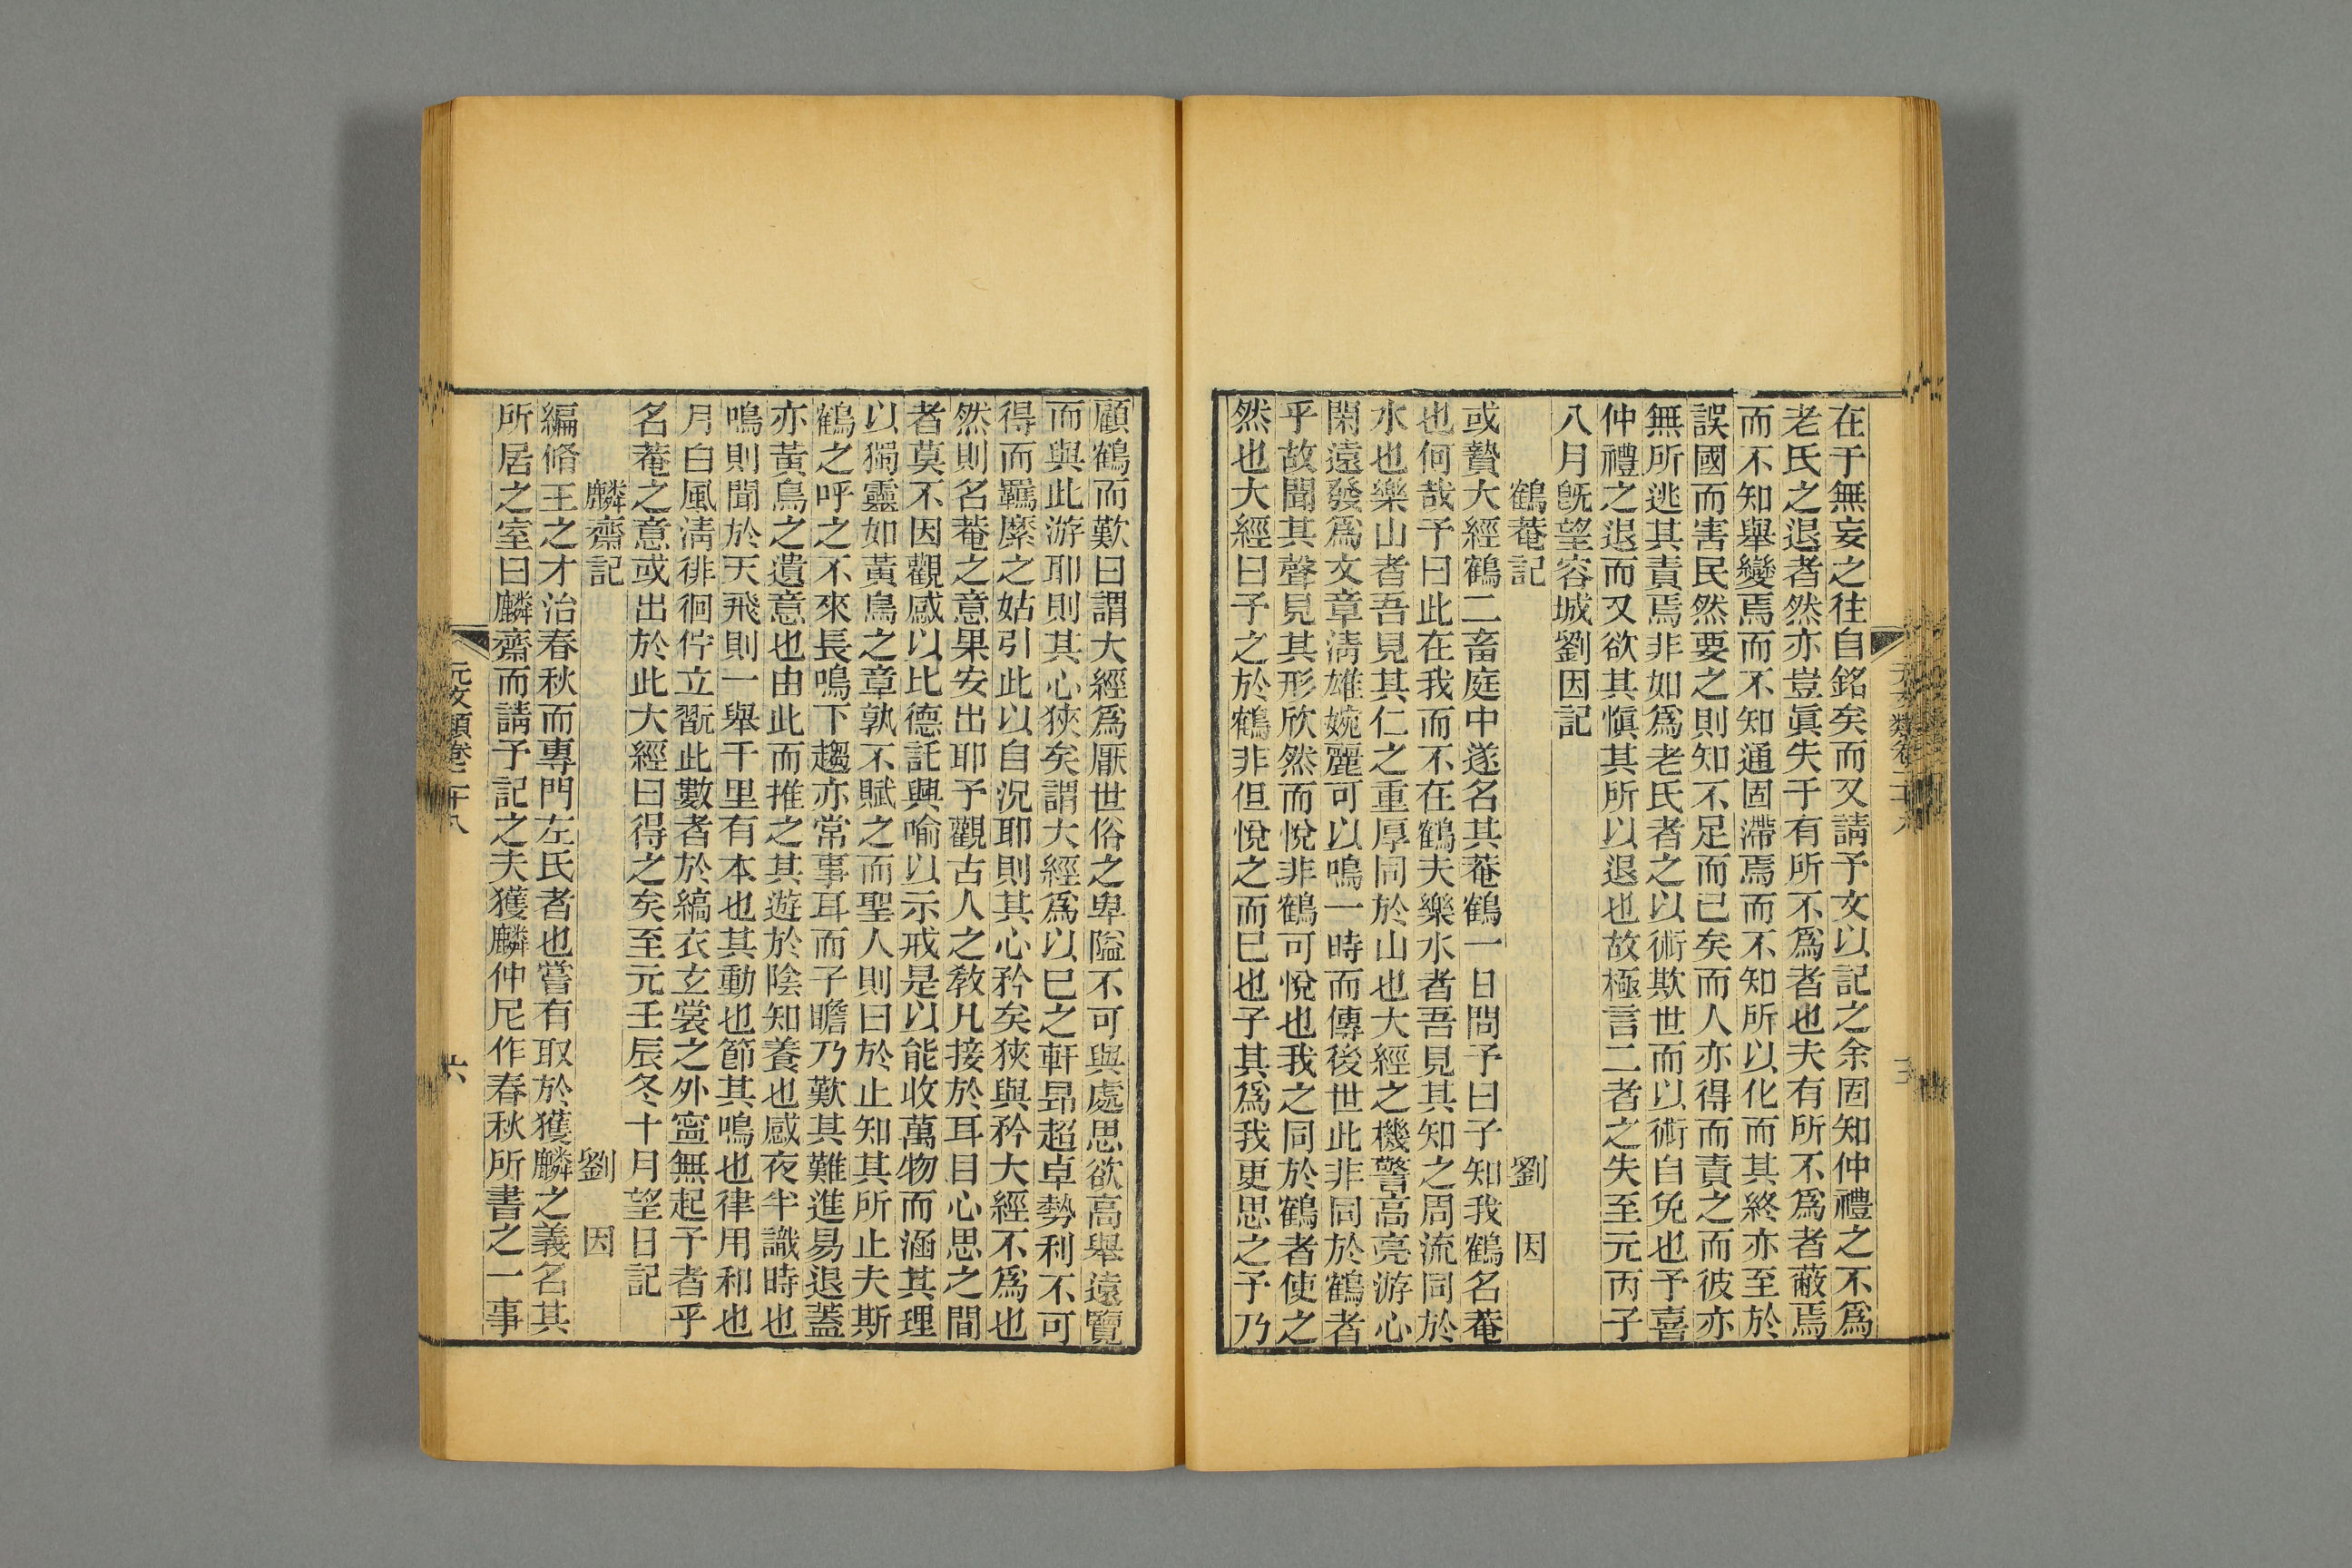 在于無妄之往自銘矣而又請予文以記之余固知仲禮之不爲
老氏之退者然亦豈眞失于有所不爲者也夫有所不爲者蔽焉
而不知舉變焉而不知通固滯焉而不知所以化而其終亦至於
誤國而害民然要之則知不足而已矣而人亦得而責之而彼亦
無所逃其責焉非如爲老氏者之以術欺世而以術自免也予喜
仲禮之退而又欲其愼其所以退也故極言二者之失至元丙子
八月旣望容城劉因記
鶴菴記 劉因
或贄大經鶴二畜庭中遂名其菴鶴一日問予曰子知我鶴名菴
也何哉予曰此在我而不在鶴夫樂水者吾見其知之周流同於
水也樂山者吾見其仁之重厚同於山也大經之機警高亮游心
閑遠發爲文章淸雄婉麗可以鳴一時而傳後世此非同於鶴者
乎故聞其聲見其形欣然而悅非鶴可悅也我之同於鶴者使之
然也大經曰予之於鶴非但悅之而已也子其爲我更思之予乃
元文類卷二十八
顧鶴而歎曰謂大經爲厭世俗之卑隘不可與處思欲高舉遠覽
而與此游耶則其心狹矣謂大經爲以已之軒昻超卓勢利不可
得而羈縻之姑引此以自況耶則其心矜矣狹與矜大經不爲也
然則名菴之意果安出耶予觀古人之敎凡接於耳目心思之間
者莫不因觀感以比德託興喻以示戒是以能收萬物而涵其理
以獨靈如黃鳥之章孰不賦之而聖人則曰於止知其所止夫斯
鶴之呼之不來長鳴下趨亦常事耳而子瞻乃歎其難進易退蓋
亦黃鳥之遺意也由此而推之其遊於陰知養也感夜半識時也
鳴則聞於天飛則一舉千里有本也其動也節其鳴也律用和也
月白風淸徘徊佇立翫此數者於縞衣玄裳之外寧無起予者乎
名菴之意或出於此大經曰得之矣至元壬辰冬十月望日記
麟齋記 劉因
編脩王之才治春秋而專門左氏者也嘗有取於獲麟之義名其
所居之室曰麟齋而請予記之夫獲麟仲尼作春秋所書之一事
元文類卷二十八 六